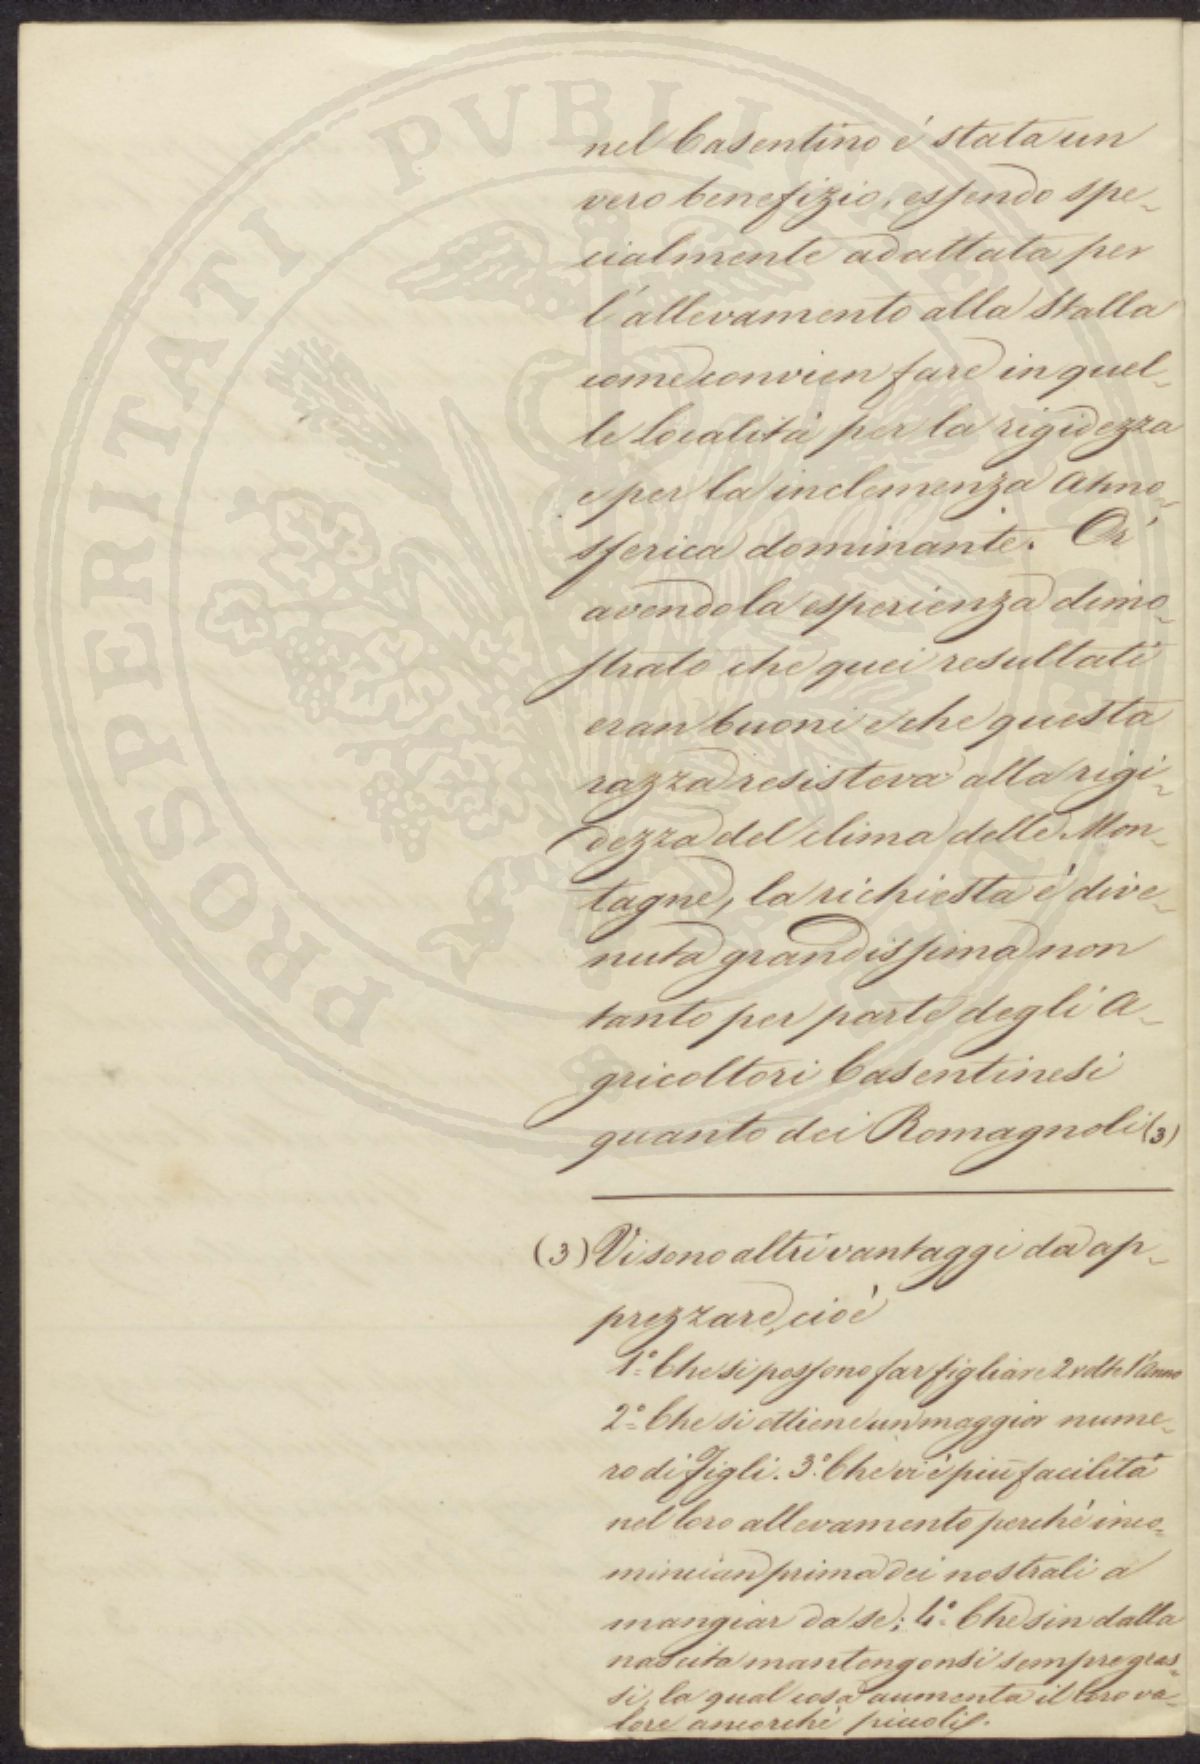 PROSPERITATI PUBLICAE
nel Casentino é stata un
vero benefizio, essendo spe-
cialmente adattata per
l'allevamento alla Stalla
come convien fare in quel-
le località per la rigidezza
e per la inclemenza Atmo-
sferica dominante. Or'
avendo la esperienza dimo-
strato che quei resultati
eran buoni e che questa
razza resisteva alla rigi-
dezza del clima delle Mon-
tagne, la richiesta é dive-
nuta grandissima non
tanto per parte degli A-
gricoltori Casentinesi
quanto dei Romagnoli (3)
(3) Vi sono altri vantaggi da ap-
prezzare, cioè
1.° Che si possono far figliare 2 volte l'Anno
2.° Che si ottiene un maggior nume-
ro di Figli. 3.° Che vi è più facilità
nel loro allevamento perché inco-
mincian prima dei nostrali a
mangiar da se; 4.° Che sin dalla
nascita mantengonsi sempre gras-
si, la qual cosa aumenta il loro va-
lore ancorché piccoli.